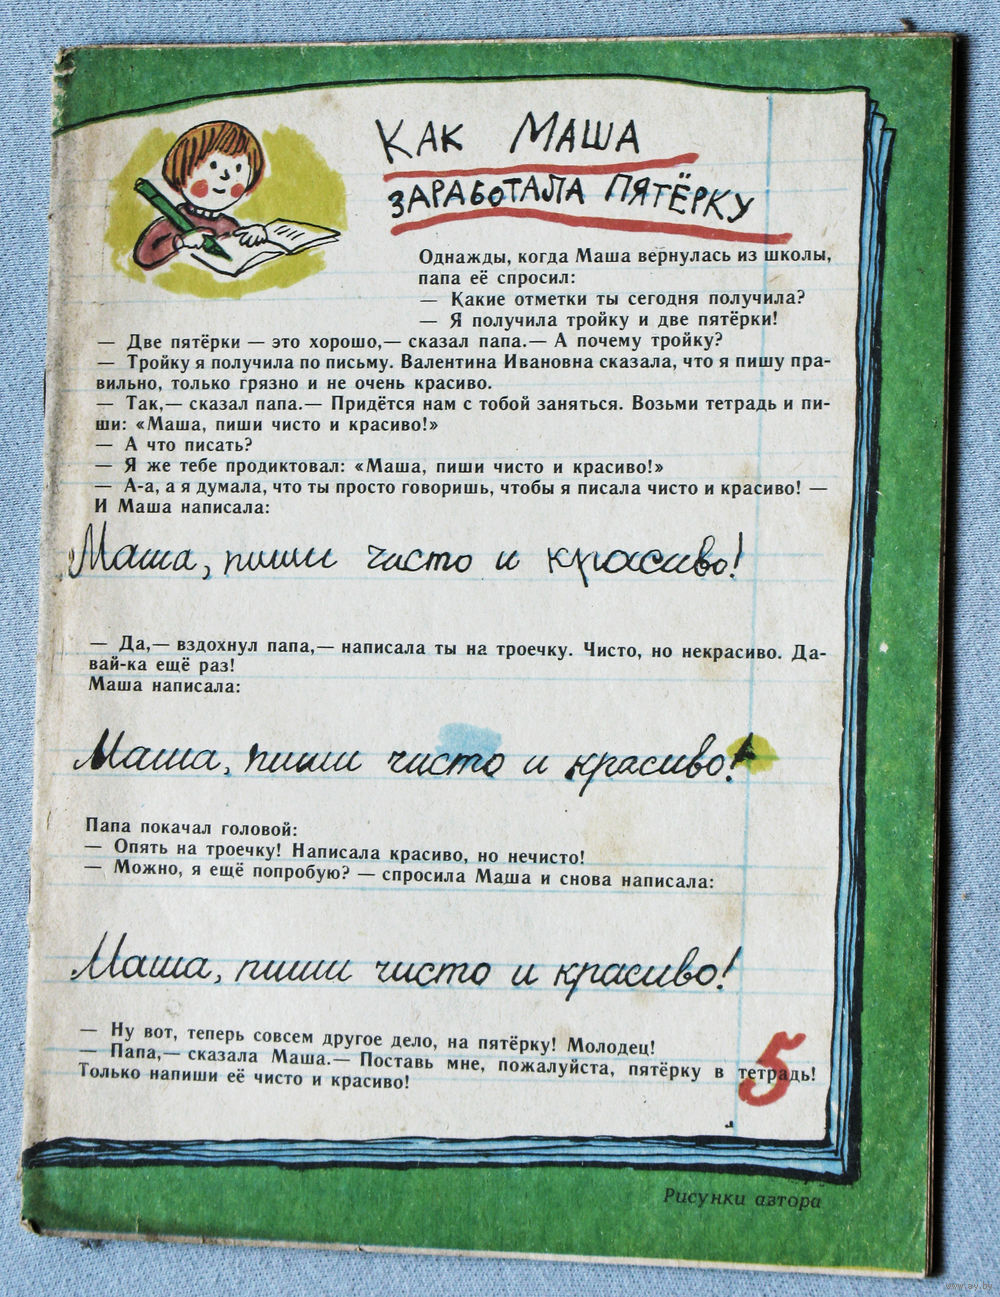 Как Маша
заработала пятёрку
Однажды, когда Маша вернулась из школы,
папа её спросил:
— Какие отметки ты сегодня получила?
— Я получила тройку и две пятёрки!
— Две пятёрки — это хорошо,— сказал папа.— А почему тройку?
— Тройку я получила по письму. Валентина Ивановна сказала, что я пишу пра-
вильно, только грязно и не очень красиво.
— Так,— сказал папа.— Придётся нам с тобой заняться. Возьми тетрадь и пи-
ши: «Маша, пиши чисто и красиво!»
— А что писать?
— Я же тебе продиктовал: «Маша, пиши чисто и красиво!»
— А-а, а я думала, что ты просто говоришь, чтобы я писала чисто и красиво! —
И Маша написала:
Маша, пиши чисто и красиво!
— Да,— вздохнул папа,— написала ты на троечку. Чисто, но некрасиво. Да-
вай-ка ещё раз!
Маша написала:
Маша, пиши чисто и красиво!
Папа покачал головой:
— Опять на троечку! Написала красиво, но нечисто!
— Можно, я ещё попробую? — спросила Маша и снова написала:
Маша, пиши чисто и красиво!
— Ну вот, теперь совсем другое дело, на пятёрку! Молодец!
— Папа,— сказала Маша.— Поставь мне, пожалуйста, пятёрку в тетрадь!
Только напиши её чисто и красиво!
5
Рисунки автора
www.ay.by